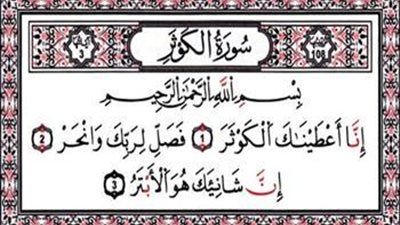 سُورَةُ الكَوْثَرِ
108
3
بِسْمِ اللَّهِ الرَّحْمَٰنِ الرَّحِيمِ
إِنَّا أَعْطَيْنَٰكَ الْكَوْثَرَ 1 فَصَلِّ لِرَبِّكَ وَانْحَرْ 2
إِنَّ شَانِئَكَ هُوَ الْأَبْتَرُ 3